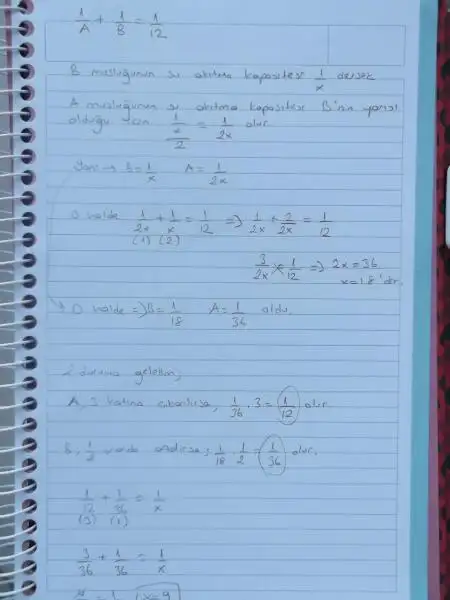 1/A + 1/B = 1/12
B musluğunun su akıtma kapasitesi 1/x dersek
A musluğunun su akıtma kapasitesi B'nin yarısı
olduğu için (1/x)/2 = 1/2x olur
Yani → B = 1/x A = 1/2x
O halde 1/2x + 1/x = 1/12 => 1/2x + 2/2x = 1/12
(1) (2)
3/2x = 1/12 => 2x = 36
x = 18'dir.
O halde => B = 1/18 A = 1/36 oldu.
2. duruma gelelim;
A, 3 katına çıkarılırsa, 1/36 . 3 = 1/12 olur
B, 1/2 olur,
1/18 . 1/2 = 1/36
1/12 + 1/36 = 1/x
(3) (1)
3/36 + 1/36 = 1/x
x = 9